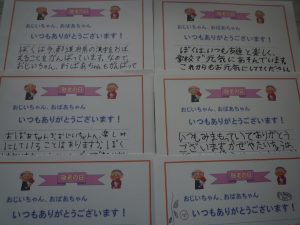 敬老の日
おじいちゃん、おばあちゃん
いつもありがとうございます！
ぼくは今、都道府県の漢字をおぼ
えることをがんばっています。なので
おじいちゃん、おばあちゃんもがんばって
敬老の日
おじいちゃん、おばあちゃん
いつもありがとうございます！
ぼくはいつも友達と楽しく、
学校で元気にあそんでいます。
これからもお元気にしてください
敬老の日
おじいちゃん、おばあちゃん
いつもありがとうございます！
おばあちゃん、おじいちゃん、楽しみ
にしていることはありますか。ぼく
敬老の日
おじいちゃん、おばあちゃん
いつもありがとうございます！
いつもみまもっていてありがとう
ございます
敬老の日
おじいちゃん、おばあちゃん
いつもありがとうございます！
敬老の日
おじいちゃん、おばあちゃん
いつもありがとうございます！